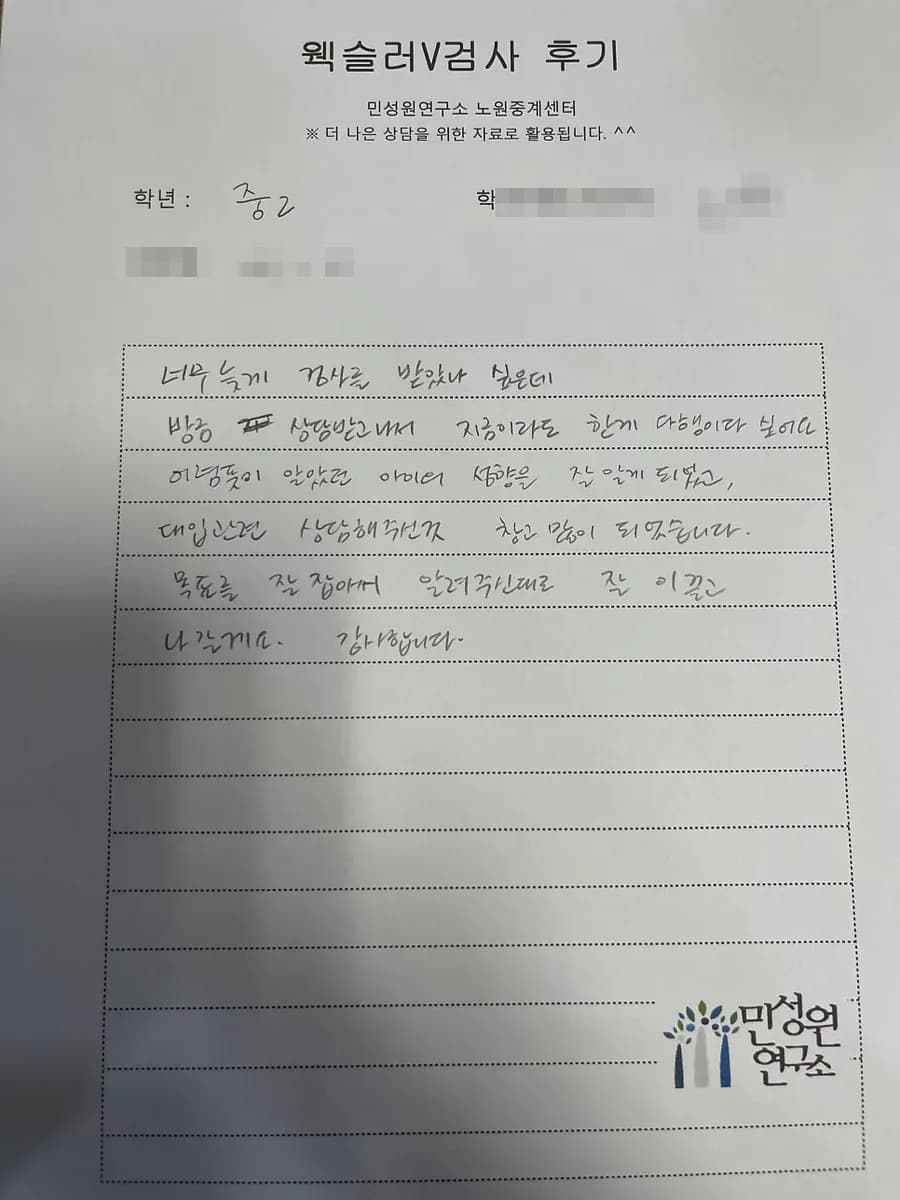 웩슬러V검사 후기
민성원연구소 노원중계센터
※ 더 나은 상담을 위한 자료로 활용됩니다. ^^
학년 : 중2
학
너무 늦게 검사를 받았나 싶은데
방금 상담받고나서 지금이라도 한게 다행이다 싶어요
어렴풋이 알았던 아이의 성향을 잘 알게 되었고,
대입관련 상담해주신것 참고 많이 되었습니다.
목표를 잘 잡아써 알려주신대로 잘 이끌고
나갈게요. 감사합니다.
민성원
연구소